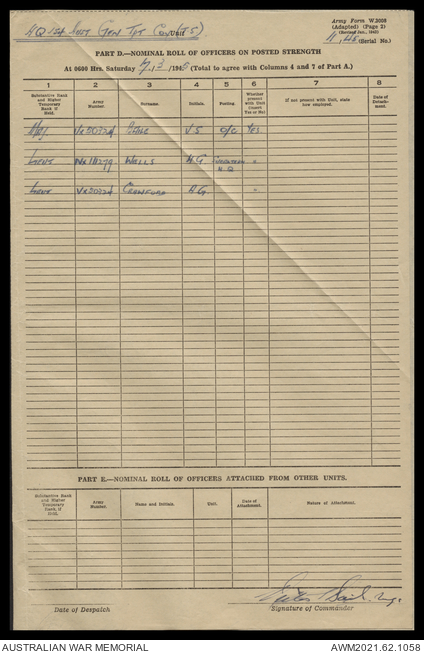 Army Form W.3008
(Adapted) (Page 2)
(Revised Jan., 1943)
(Serial No.)
HQ 1st Gen Tpt Coy Unit
PART D.—NOMINAL ROLL OF OFFICERS ON POSTED STRENGTH
At 0600 Hrs. Saturday /194 (Total to agree with Columns 4 and 7 of Part A.)
1 2 3 4 5 6 7 8
Substantive Rank and Higher Temporary Rank if Held.
Army Number.
Surname.
Initials.
Posting.
Whether present with Unit (insert Yes or No)
If not present with Unit, state how employed.
Date of Detachment.
Maj VS O/C Yes
Lieut Wells H.G. H.Q. "
Lieut Crawford A.G. "
PART E.—NOMINAL ROLL OF OFFICERS ATTACHED FROM OTHER UNITS.
Substantive Rank and Higher Temporary Rank if Held.
Army Number.
Name and Initials.
Unit.
Date of Attachment.
Nature of Attachment.
Date of Despatch
Signature of Commander
AUSTRALIAN WAR MEMORIAL
AWM2021.62.1058